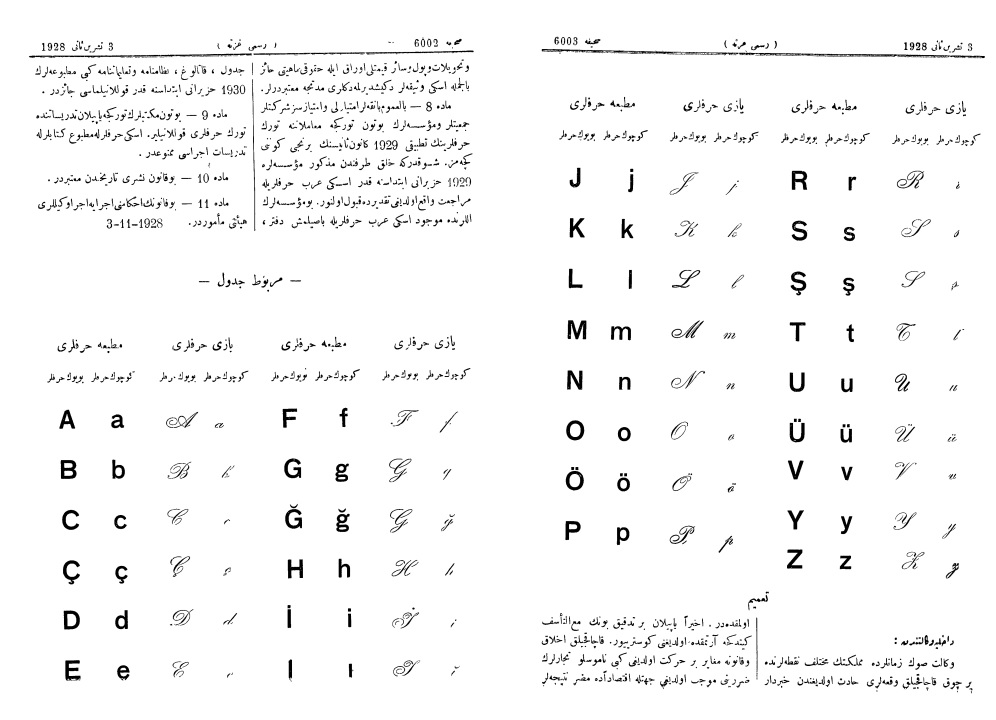 3 تشرین ثانی 1928
( رسمی غزته )
صحیفه 6002
وتحویلات وپول وسائر قیمتلی اوراق ایله حقوقی ماهیتی حائز
بالجمله اسکی وثیقه‌لر دکیشدیریلمه‌دکاری مدتجه معتبردرلر.
ماده 8 — بالعموم بانقه‌لر امتیازلی وامتیازسز شرکتلر
جمعیتلر ومؤسسه‌لرك بوتون تورکجه معاملاتنه تورك
حرفلرینك تطبیقی 1929 کانون‌ثانیسنك برنجی کوننی
کچه‌مز. شو قدرکه خلق طرفندن مذکور مؤسسه‌لره
1929 حزیرانی ابتداسنه قدر اسکی عرب حرفلریله
مراجعت واقع اولدیغی تقدیرده قبول اولنور. بو مؤسسه‌لرك
اللرنده موجود اسکی عرب حرفلریله باصیلمش دفتر ،
جدول ، قاتالوغ ، نظامنامه وتعلیماتنامه کبی مطبوعه‌لرك
1930 حزیرانی ابتداسنه قدر قوللانیلماسی جائزدر.
ماده 9 — بوتون مکتبلرك تورکجه یاپیلان تدریساتنده
تورك حرفلری قوللانیلیر. اسکی حرفلرله مطبوع کتابلرله
تدریسات اجراسی ممنوعدر.
ماده 10 — بو قانون نشری تاریخندن معتبردر.
ماده 11 — بو قانونك احکامنی اجرایه اجرا وکیللری
هیئتی مأموردر. 3-11-1928
— مربوط جدول —
مطبعه حرفلری یازی حرفلری مطبعه حرفلری یازی حرفلری
بویوك حرفلر کوچوك حرفلر بویوك حرفلر کوچوك حرفلر بویوك حرفلر کوچوك حرفلر بویوك حرفلر کوچوك حرفلر
A a A a F f F f
B b B b G g G g
C c C c Ğ ğ Ğ ğ
Ç ç Ç ç H h H h
D d D d İ i İ i
E e E e I ı I ı
صحیفه 6003
( رسمی غزته )
3 تشرین ثانی 1928
مطبعه حرفلری یازی حرفلری مطبعه حرفلری یازی حرفلری
بویوك حرفلر کوچوك حرفلر بویوك حرفلر کوچوك حرفلر بویوك حرفلر کوچوك حرفلر بویوك حرفلر کوچوك حرفلر
J j J j R r R r
K k K k S s S s
L l L l Ş ş Ş ş
M m M m T t T t
N n N n U u U u
O o O o Ü ü Ü ü
Ö ö Ö ö V v V v
P p P p Y y Y y
Z z Z z
تعمیم
داخلیه وکالتندن :
وکالت صوك زمانلرده مملکتك مختلف نقطه‌لرنده
بر چوق قاچاقجیلق وقعه‌لری حادث اولدیغندن خبردار
اولمقده‌در. اخیراً یاپیلان بر تدقیق بونك مع‌التأسف
کیتدکجه آرتمقده اولدیغنی کوستریور. قاچاقجیلق اخلاق
وقانونه مغایر بر حرکت اولدیغی کبی ناموسلو تجارلرك
ضررینی موجب اولدیغی جهتله اقتصاداً ده مضر نتیجه‌لر